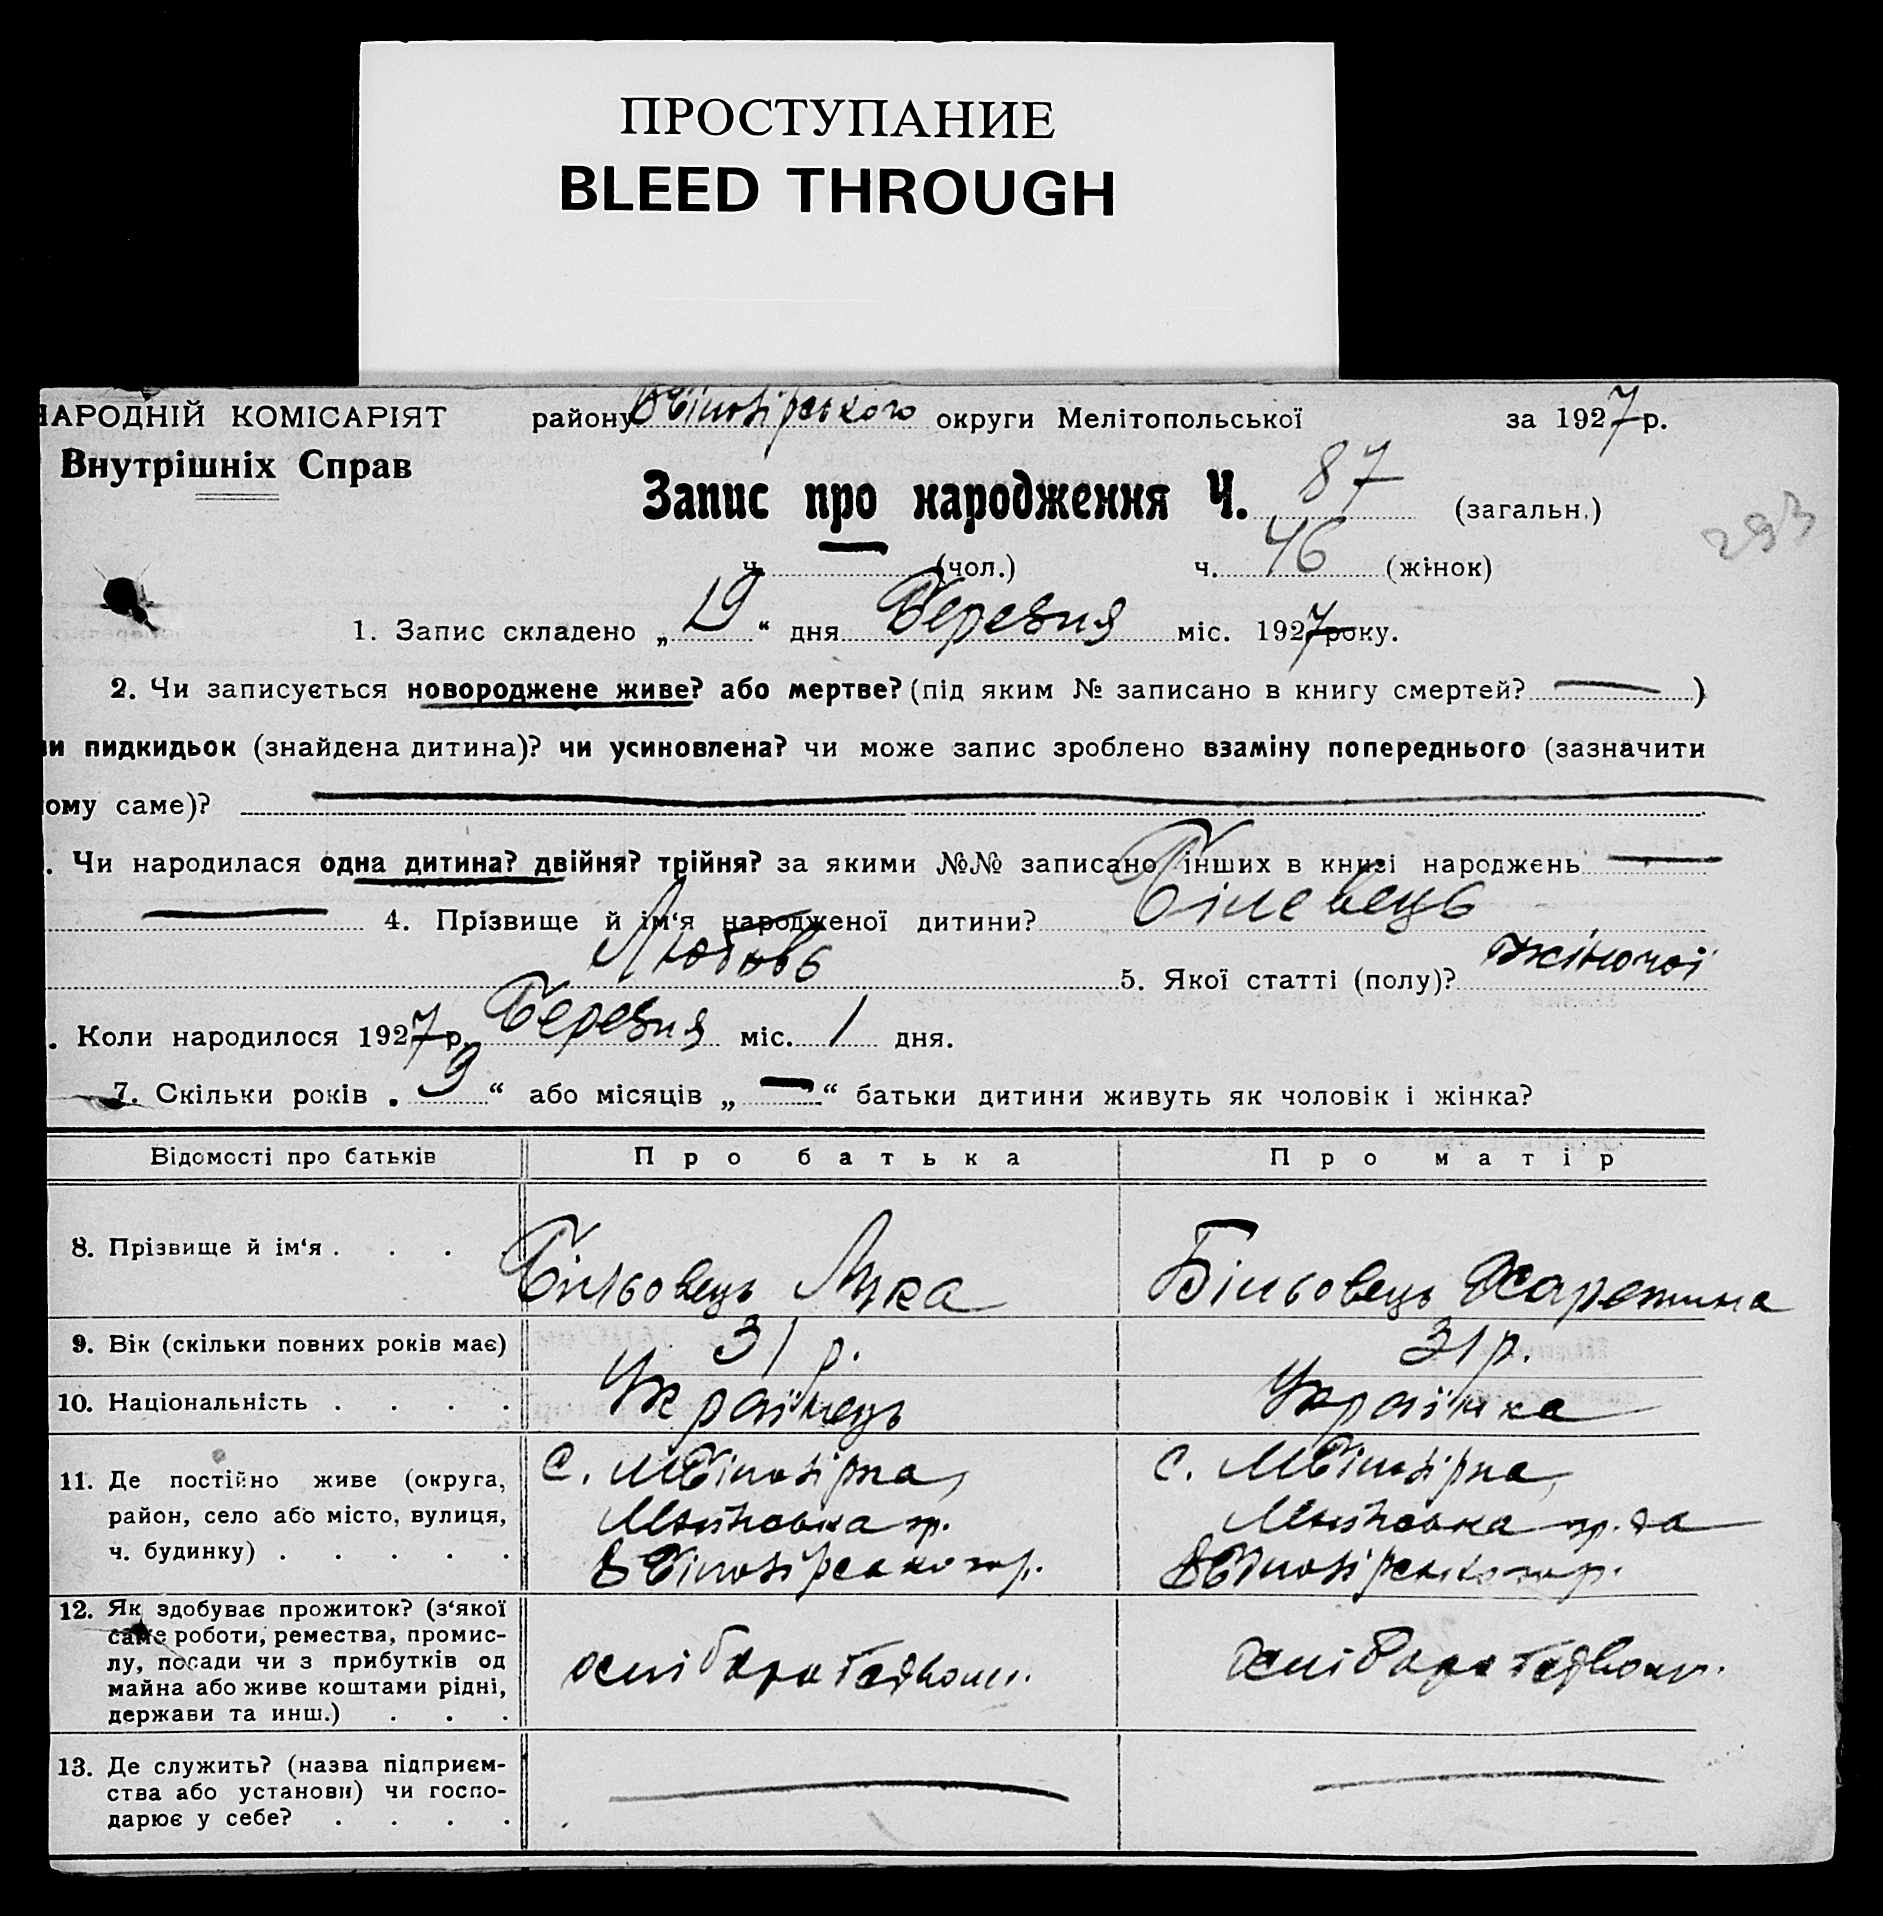 ПРОСТУПАНИЕ
BLEED THROUGH
НАРОДНІЙ КОМІСАРІЯТ району округи Мелітопольської за 1927 р.
Внутрішніх Справ
Запис про народження Ч. 87 (загальн.)
293
ч. (чол.) ч. 46 (жінок)
1. Запис складено „19“ дня Березня міс. 1927 року.
2. Чи записується новороджене живе? або мертве? (під яким № записано в книгу смертей? — )
чи пидкидьок (знайдена дитина)? чи усиновлена? чи може запис зроблено взаміну попереднього (зазначити
ому саме)? —
. Чи народилася одна дитина? двійня? трійня? за якими №№ записано інших в книзі народжень —
— 4. Прізвище й ім‘я народженої дитини? Білевець
Любовь 5. Якої статті (полу)? жіночої
. Коли народилося 1927 р. Березня міс. 1 дня.
7. Скільки років „9“ або місяців „—“ батьки дитини живуть як чоловік і жінка?
Відомості про батьків Про батька Про матір
8. Прізвище й ім‘я . . . . Більовець Лука Більовець
9. Вік (скільки повних років має) 31 р. 31 р.
10. Національність . . . . Українець Українка
11. Де постійно живе (округа, с. с.
район, село або місто, вулиця,
ч. будинку) . . . . .
12. Як здобуває прожиток? (з‘якої
саме роботи, ремества, промис-
лу, посади чи з прибутків од
майна або живе коштами рідні,
держави та инш.) . . .
13. Де служить? (назва підприєм-
ства або установи) чи госпо- — —
дарює у себе? . . . .